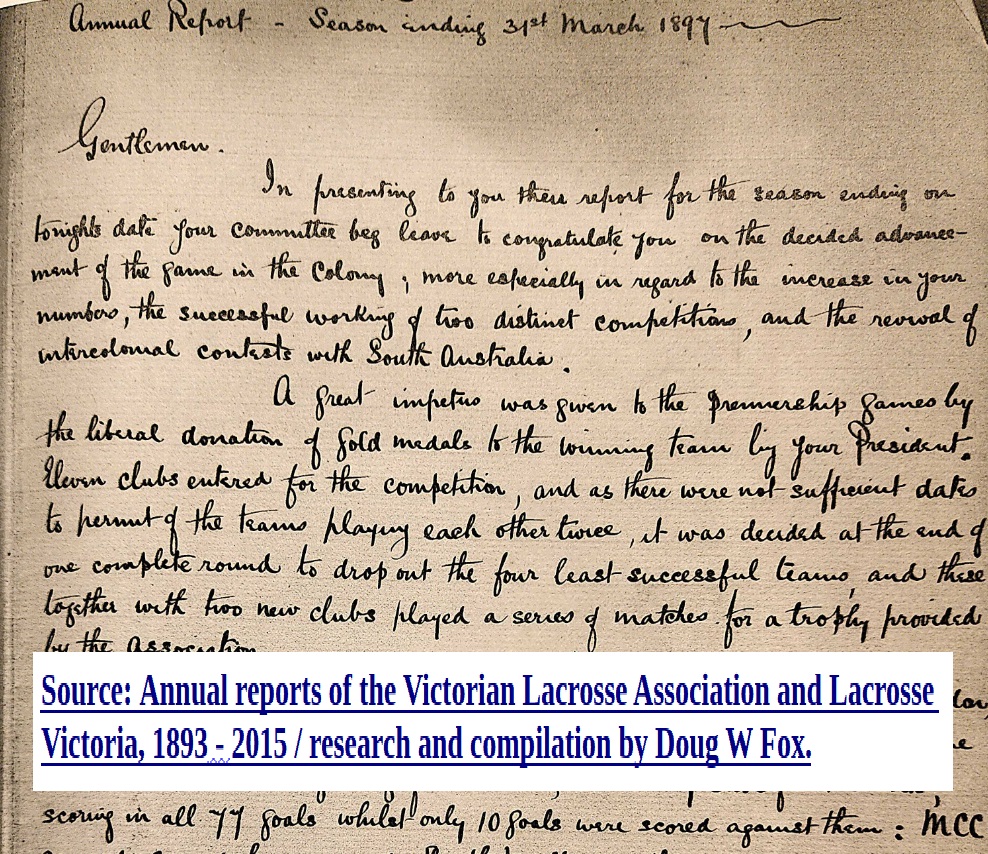 Annual Report - Season ending 31st March 1897
Gentlemen.
In presenting to you their report for the season ending on
tonights date your committee beg leave to congratulate you on the decided advance-
ment of the game in the Colony; more especially in regard to the increase in your
numbers, the successful working of two distinct competitions, and the revival of
intercolonial contests with South Australia.
A great impetus was given to the Premiership games by
the liberal donation of gold medals to the winning team by your President.
Eleven clubs entered for the competition, and as there were not sufficient dates
to permit of the teams playing each other twice, it was decided at the end of
one complete round to drop out the four least successful teams, and these
together with two new clubs played a series of matches for a trophy provided
by the Association
Source: Annual reports of the Victorian Lacrosse Association and Lacrosse
Victoria, 1893 - 2015 / research and compilation by Doug W Fox.
scoring in all 77 goals whilst only 10 goals were scored against them: MCC